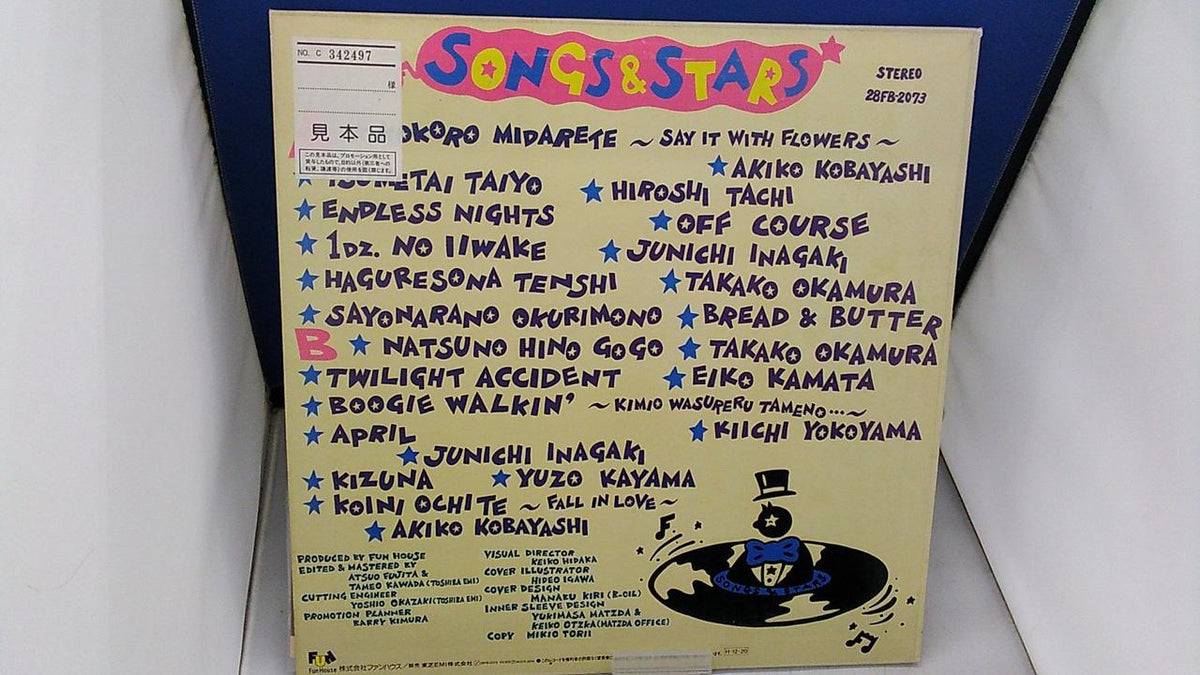 NO. C 342497
様
見本品
この見本品は、プロモーション用として
貸与したもので、目的以外(第三者への
転貸、譲渡等)の使用を固く禁じます。
SONGS & STARS
STEREO
28FB-2073
OKORO MIDARETE ~ SAY IT WITH FLOWERS ~
★ AKIKO KOBAYASHI
TSUMETAI TAIYO ★ HIROSHI TACHI
★ ENDLESS NIGHTS ★ OFF COURSE
★ 1DZ. NO IIWAKE ★ JUNICHI INAGAKI
★ HAGURESONA TENSHI ★ TAKAKO OKAMURA
★ SAYONARANO OKURIMONO ★ BREAD & BUTTER
B ★ NATSUNO HINO GOGO ★ TAKAKO OKAMURA
★ TWILIGHT ACCIDENT ★ EIKO KAMATA
★ BOOGIE WALKIN' ~ KIMIO WASURERU TAMENO... ~
★ KIICHI YOKOYAMA
★ APRIL
★ JUNICHI INAGAKI
★ KIZUNA ★ YUZO KAYAMA
★ KOINI OCHITE ~ FALL IN LOVE ~
★ AKIKO KOBAYASHI
PRODUCED BY FUN HOUSE
EDITED & MASTERED BY
ATSUO FUJITA &
TAMEO KAWADA (TOSHIBA EMI)
CUTTING ENGINEER
YOSHIO OKAZAKI (TOSHIBA EMI)
PROMOTION PLANNER
BARRY KIMURA
VISUAL DIRECTOR
KEIKO HIDAKA
COVER ILLUSTRATOR
HIDEO IGAWA
COVER DESIGN
MANABU KIRI (B-CIL)
INNER SLEEVE DESIGN
YUKIMASA MATZDA &
KEIKO OTZKA (MATZDA OFFICE)
COPY MIKIO TORII
SONGS & STARS
FUN
Fun House 株式会社ファンハウス/販売 東芝EMI株式会社
H-12-20